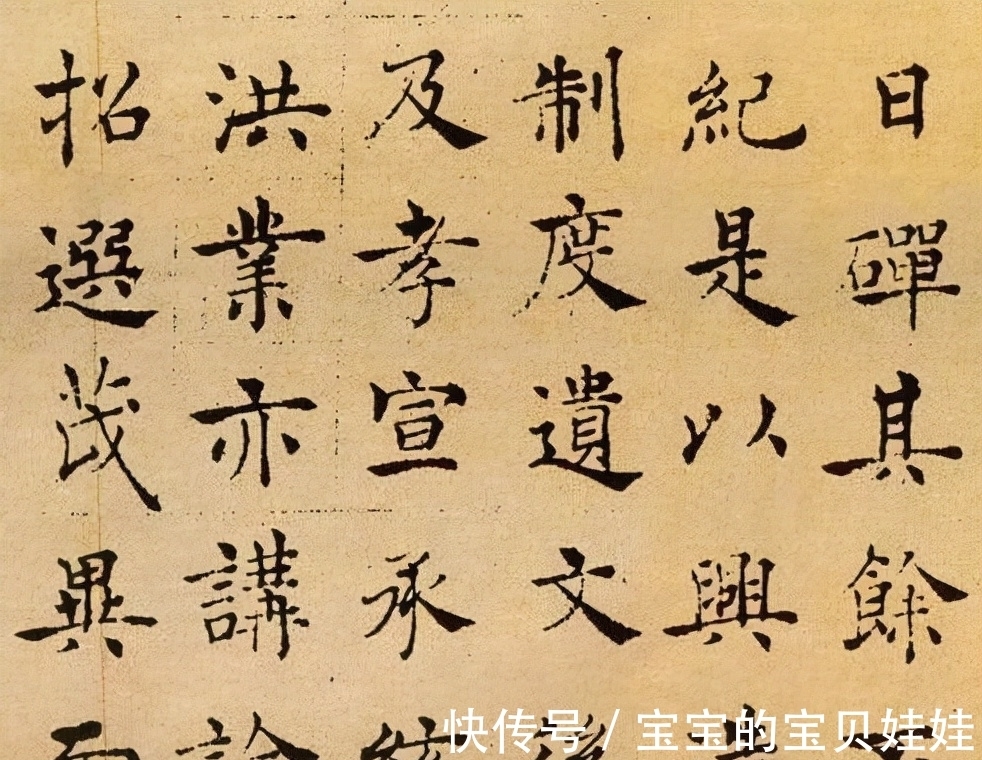 日磾其餘
紀是以興
制度遺文
及孝宣承
洪業亦講論
招選茂異而
快传号 / 宝宝的宝贝娃娃